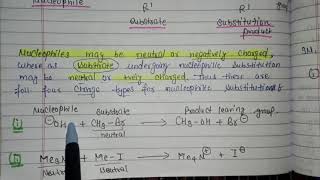 Nucleophile R¹ R¹
substrate substitution
product
Nucleophiles may be neutral or negatively charged,
where as substrate undergoing nucleophilic substitution
may be neutral or +vely charged, thus there are
four charge types for nucleophilic substitutions
Nucleophile Substrate Product leaving group.
(i) ⊖OH + CH₃–Br → CH₃–OH + Br⊖
neutral
(ii) Me₃N + Me–I → Me₄N⊕ + I⊖
Neutral neutral